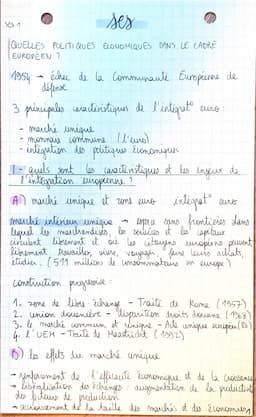 SES 1
ses
QUELLES POLITIQUES ÉCONOMIQUES DANS LE CADRE
EUROPÉEN ?
1954 → échec de la Communauté Européenne de
défense
3 principales caractéristiques de l'intégrat° euro :
- marché unique
- monnaie commune (l'euro)
- intégration des politiques économiques
1 - quels sont les caractéristiques et les enjeux de
l'intégration européenne ?
A) marché unique et zone euro intégrat° euro
marché intérieur unique → espace sans frontières dans
lequel les marchandises, les services et les capitaux
circulent librement et où les citoyens européens peuvent
librement travailler, vivre, voyager, faire leurs achats,
étudier. (511 millions de consommateurs en europe)
construction progressive :
1. zone de libre échange - Traité de Rome (1957)
2. union douanière - disparition droits douane (1968)
3. le marché commun et unique - Acte unique européen (86)
4. l'UEM - Traité de Maastricht (1992)
B) les effets du marché unique
→ renforcement de l'efficacité économique et de la croissance
→ libéralisation des échanges : augmentation de la productivité
des facteurs de production
→ accroissement de la taille des marchés et des économies